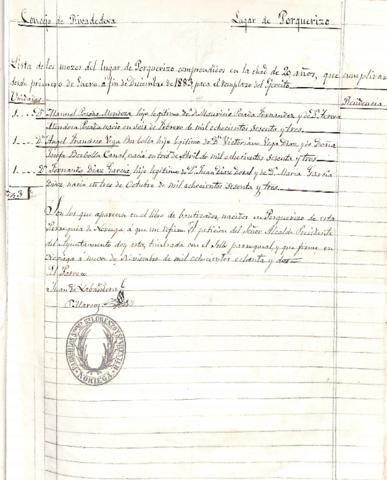 Concejo de Rivadedeva Lugar de Porquerizo
Lista de los mozos del lugar de Porquerizo comprendidos en la edad de 20 años, que cumplieron
desde primero de Enero a fin de Diciembre de 1883 para el reemplazo del Ejército
Residencia
1 Dn Manuel Mendoza hijo legítimo de Dn Mauricio Fernandez y de Dª
Mendoza nació en seis de Febrero de mil ochocientos sesenta y tres
1 Dn Angel Francisco Vega Borbolla hijo legítimo de Dn Victoriano Vega Diaz y de Doña
Josefa Borbolla Canal, nació en tres de Abril de mil ochocientos sesenta y tres
1 Dn Fernando Diaz Garcia hijo legítimo de Dn Juan Diaz y de Dª Maria Garcia
Diaz, nació en tres de Octubre de mil ochocientos sesenta y tres
3
Son los que aparecen en el libro de bautizados, nacidos en Porquerizo de esta
Parroquia de Noriega a que me refiero. A peticion del Señor Alcalde Presidente
del Ayuntamiento doy esta, timbrada con el Sello parroquial y que firmo en
Noriega a nueve de Noviembre de mil ochocientos ochenta y dos
El Parroco
Juan de Labandera
NORIEGA